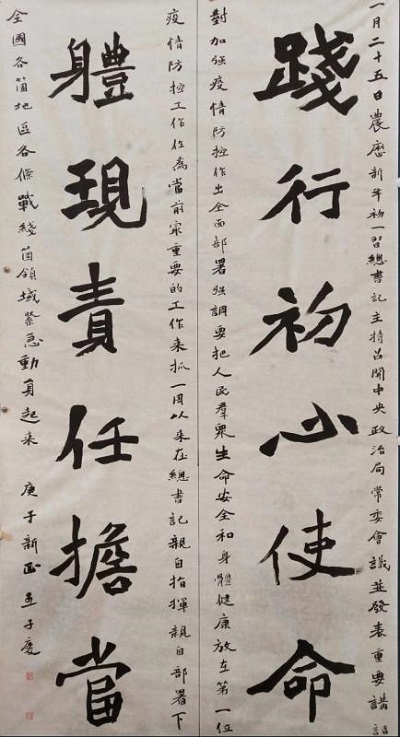 一月二十五日農曆新年初一習總書記主持召開中央政治局常委會議並發表重要講話
踐行初心使命
對加强疫情防控作出全面部署强調要把人民羣衆生命安全和身體健康放在第一位
疫情防控工作作為當前冣重要的工作來抓一周以來在總書記親自指揮親自部署下
體現責任擔當
全國各箇地區各條戰綫箇領域緊急動員起來 庚子新正